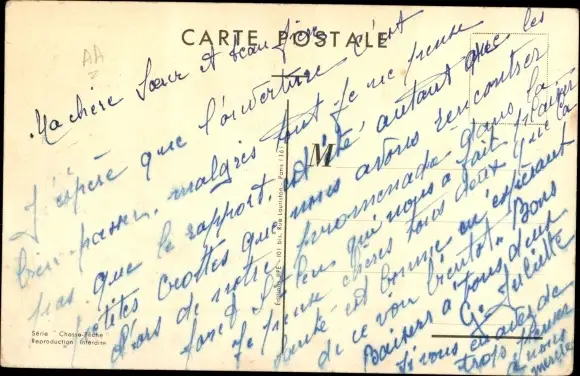 CARTE POSTALE
AA
Ma chère Sœur et beau frère
J'espère que l'ouverture c'est
bien passer, malgrès tout je ne pense
pas que le rapport est été autant que les
petites crottes que nous avons rencontrer
lors de notre promenade dans la
forêt d' qui nous a fait plaisir
Je pense chères tous deux que la
santé est bonne en espérant
de ce voir bientôt. Bons
Baisers à tous deux
G. Juliette
Si vous
trois
à nous
M
Editions PEF, 101 bis, Rue Lauriston - Paris (16e)
Série "Chasse-Pêche"
Reproduction Interdite